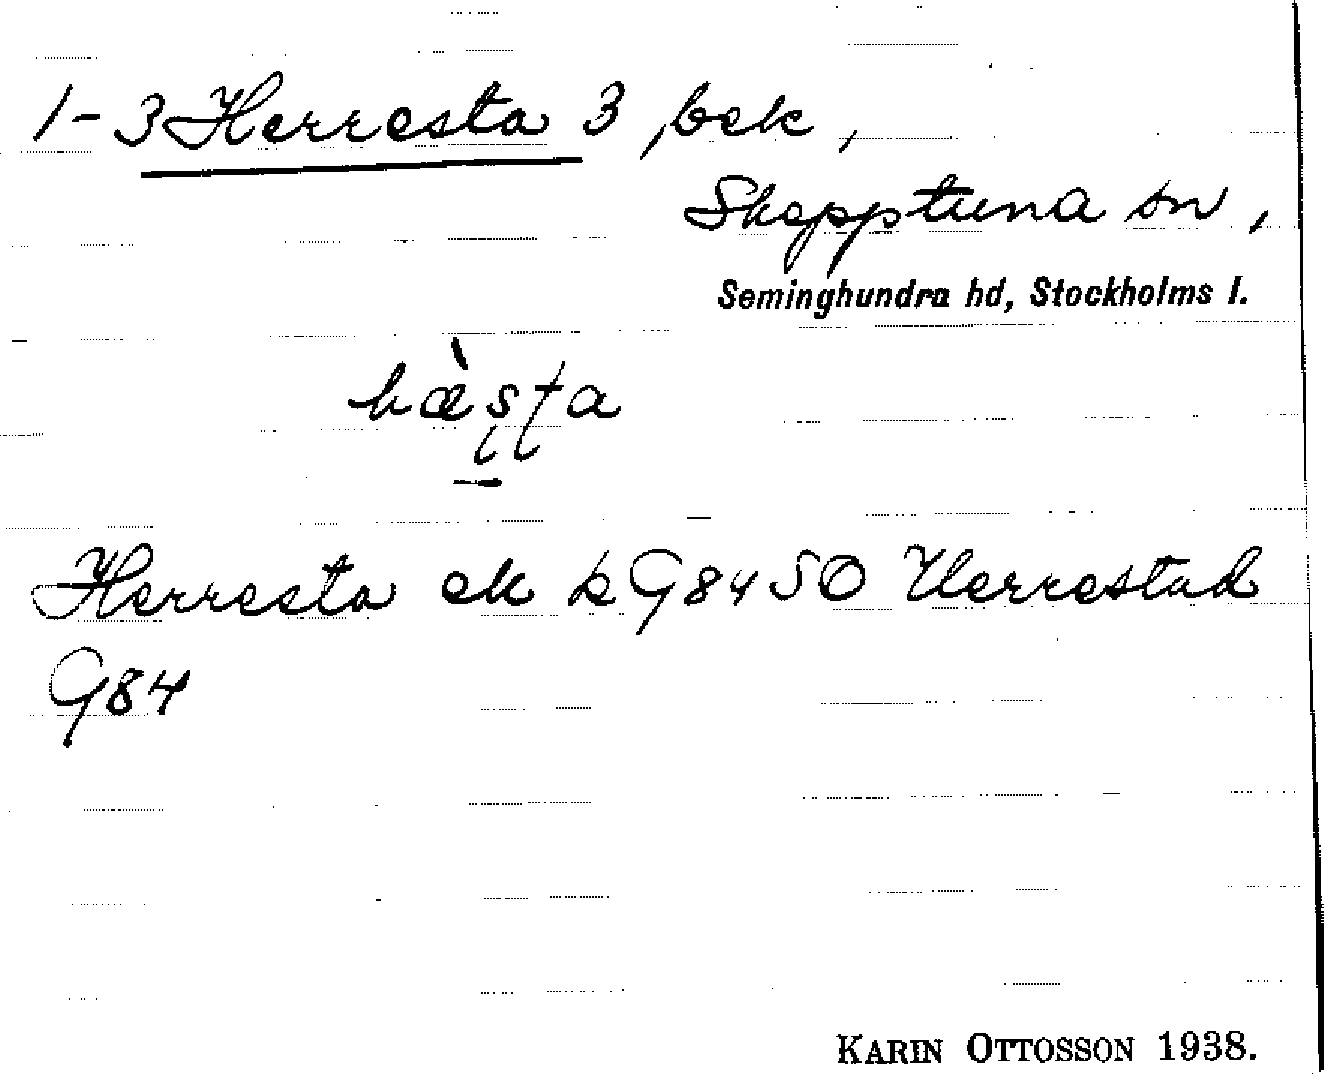 1-3 Herresta 3, bek,
Skepptuna sn,
Seminghundra hd, Stockholms l.
Herresta ek k G84 SO Herrestad
G84
KARIN OTTOSSON 1938.